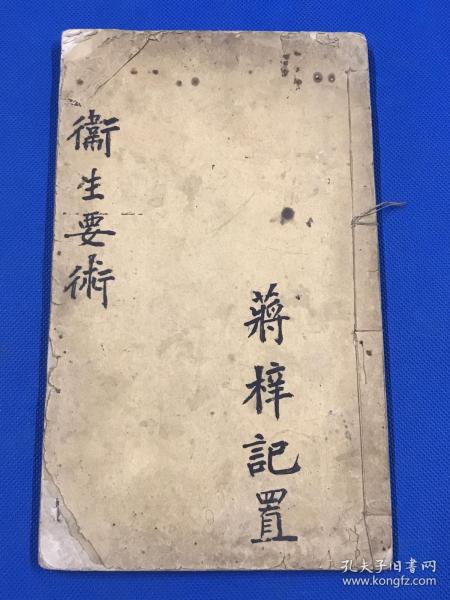 衞生要術
蔣梓記置
孔夫子旧书网
www.kongfz.com